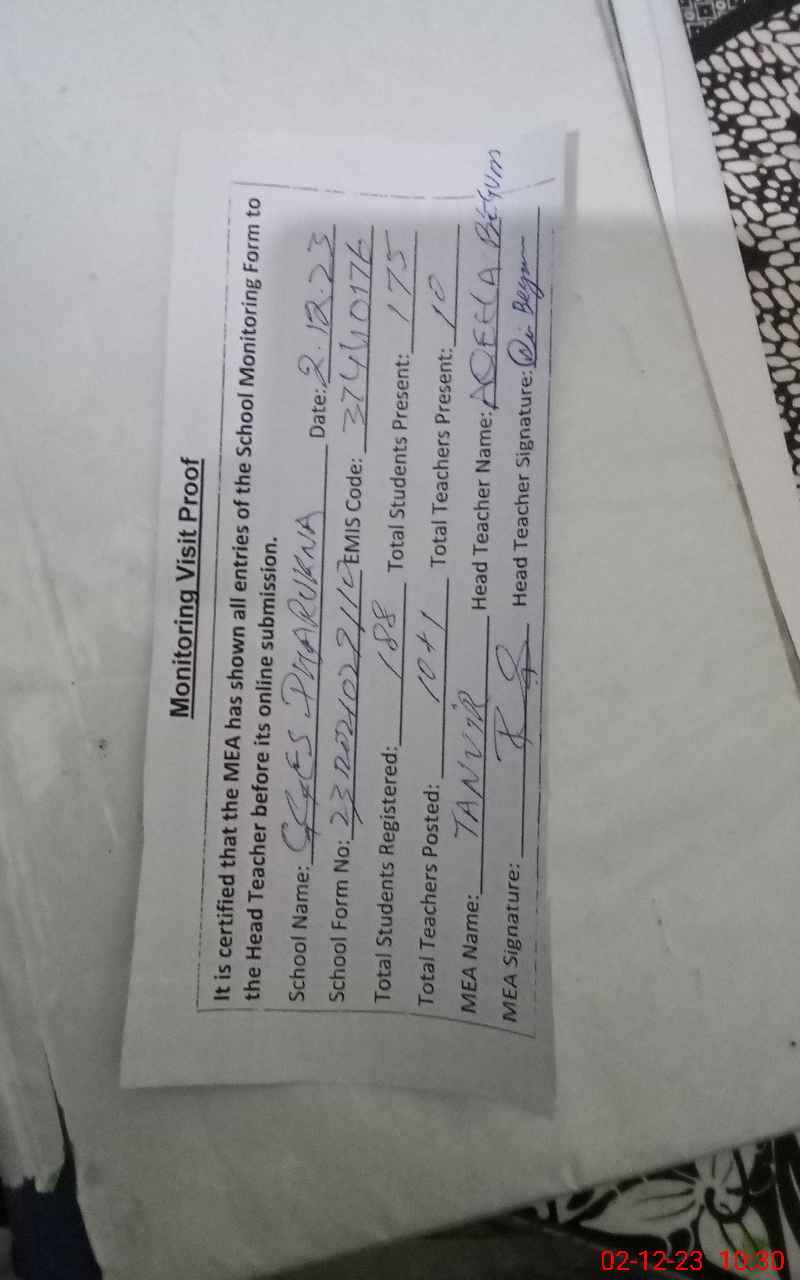 Monitoring Visit Proof
It is certified that the MEA has shown all entries of the School Monitoring Form to
the Head Teacher before its online submission.
School Name: GGES PHARUKNA Date: 2.12.23
School Form No: EMIS Code: 37440176
Total Students Registered: 188 Total Students Present: 175
Total Teachers Posted: 10+1 Total Teachers Present: 10
MEA Name: TANVIR Head Teacher Name: AQEELA BEGUM
MEA Signature: Head Teacher Signature: Begum
02-12-23 10:30